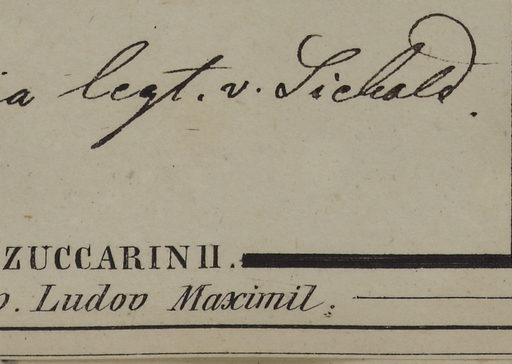 ia legt. v. Siebold.
ZUCCARINII.
p. Ludov Maximil.